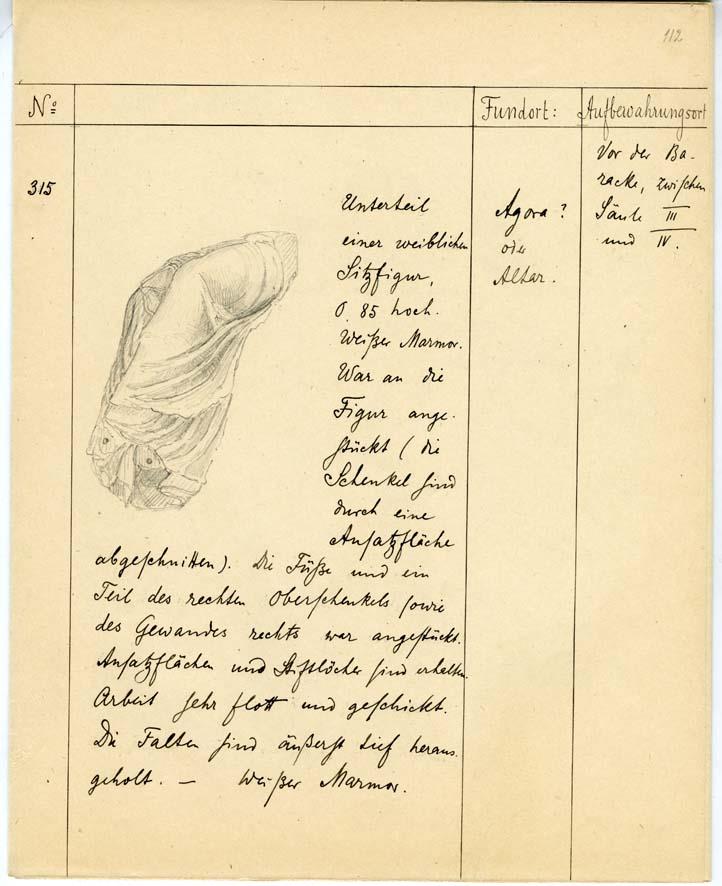 112
Nº Fundort: Aufbewahrungsort
315
Unterteil
einer weiblichen
Sitzfigur,
0,85 hoch.
Weißer Marmor.
War an die
Figur ange-
stückt (die
Schenkel sind
durch eine
Ansatzfläche
abgeschnitten). Die Füße und ein
Teil des rechten Oberschenkels sowie
des Gewandes rechts war angestückt.
Ansatzflächen und Stiftlöcher sind erhalten.
Arbeit sehr flott und geschickt.
Die Falten sind äußerst tief heraus-
geholt. — Weißer Marmor.
Agora?
oder
Altar.
Vor der Ba-
racke, zwischen
Säule III
und IV.